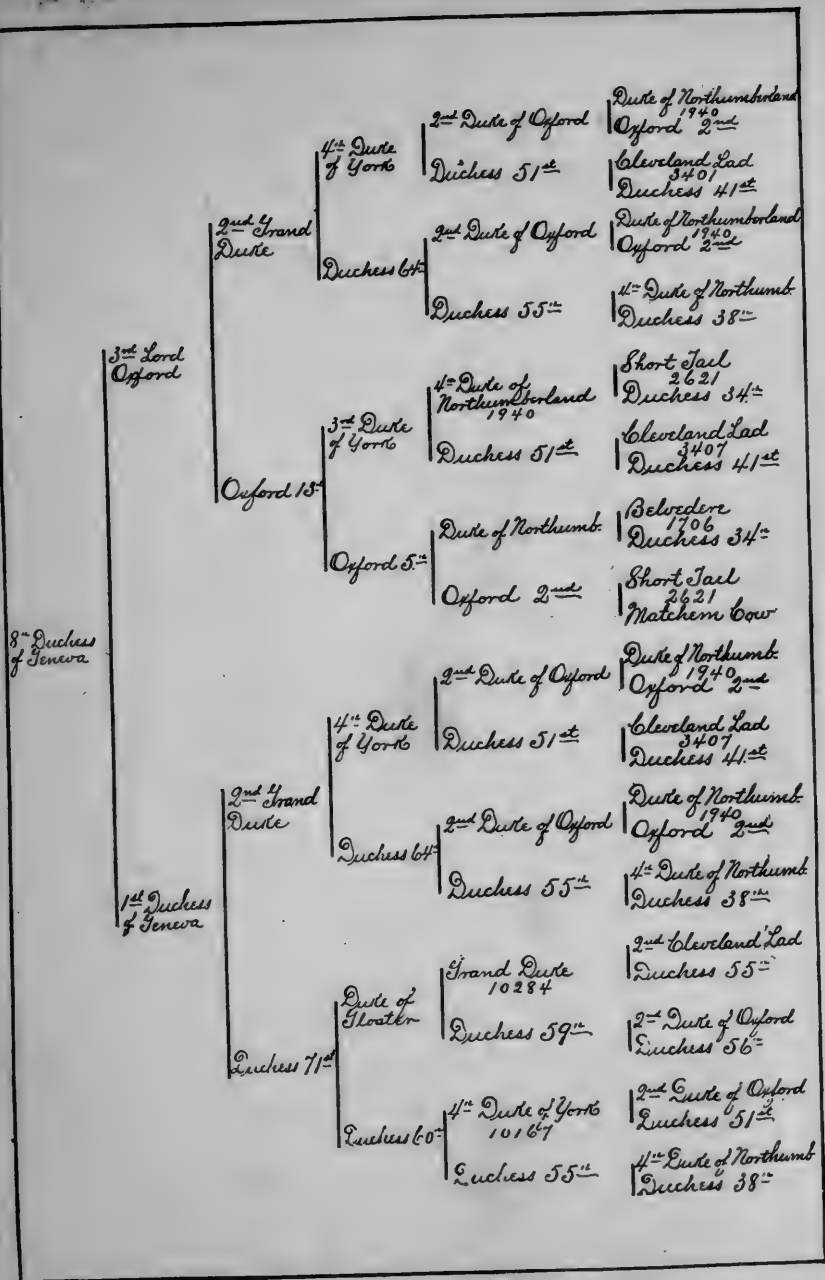 8th Duchess
of Geneva
3rd Lord
Oxford
1st Duchess
of Geneva
2nd Grand
Duke
Oxford 13th
2nd Grand
Duke
Duchess 71st
4th Duke
of York
Duchess 64th
3rd Duke
of York
Oxford 5th
4th Duke
of York
Duchess 64th
Duke of
Gloster
Duchess 60th
2nd Duke of Oxford
Duchess 51st
2nd Duke of Oxford
Duchess 55th
4th Duke of
Northumberland
1940
Duchess 51st
Duke of Northumb.
Oxford 2nd
2nd Duke of Oxford
Duchess 51st
2nd Duke of Oxford
Duchess 55th
Grand Duke
10284
Duchess 59th
4th Duke of York
10167
Duchess 55th
Duke of Northumberland
1940
Oxford 2nd
Cleveland Lad
3401
Duchess 41st
Duke of Northumberland
1940
Oxford 2nd
4th Duke of Northumb.
Duchess 38th
Short Tail
2621
Duchess 34th
Cleveland Lad
3407
Duchess 41st
Belvedere
1706
Duchess 34th
Short Tail
2621
Matchem Cow
Duke of Northumb.
1940
Oxford 2nd
Cleveland Lad
3407
Duchess 41st
Duke of Northumb.
1940
Oxford 2nd
4th Duke of Northumb
Duchess 38th
2nd Cleveland Lad
Duchess 55th
2nd Duke of Oxford
Duchess 56th
2nd Duke of Oxford
Duchess 51st
4th Duke of Northumb
Duchess 38th